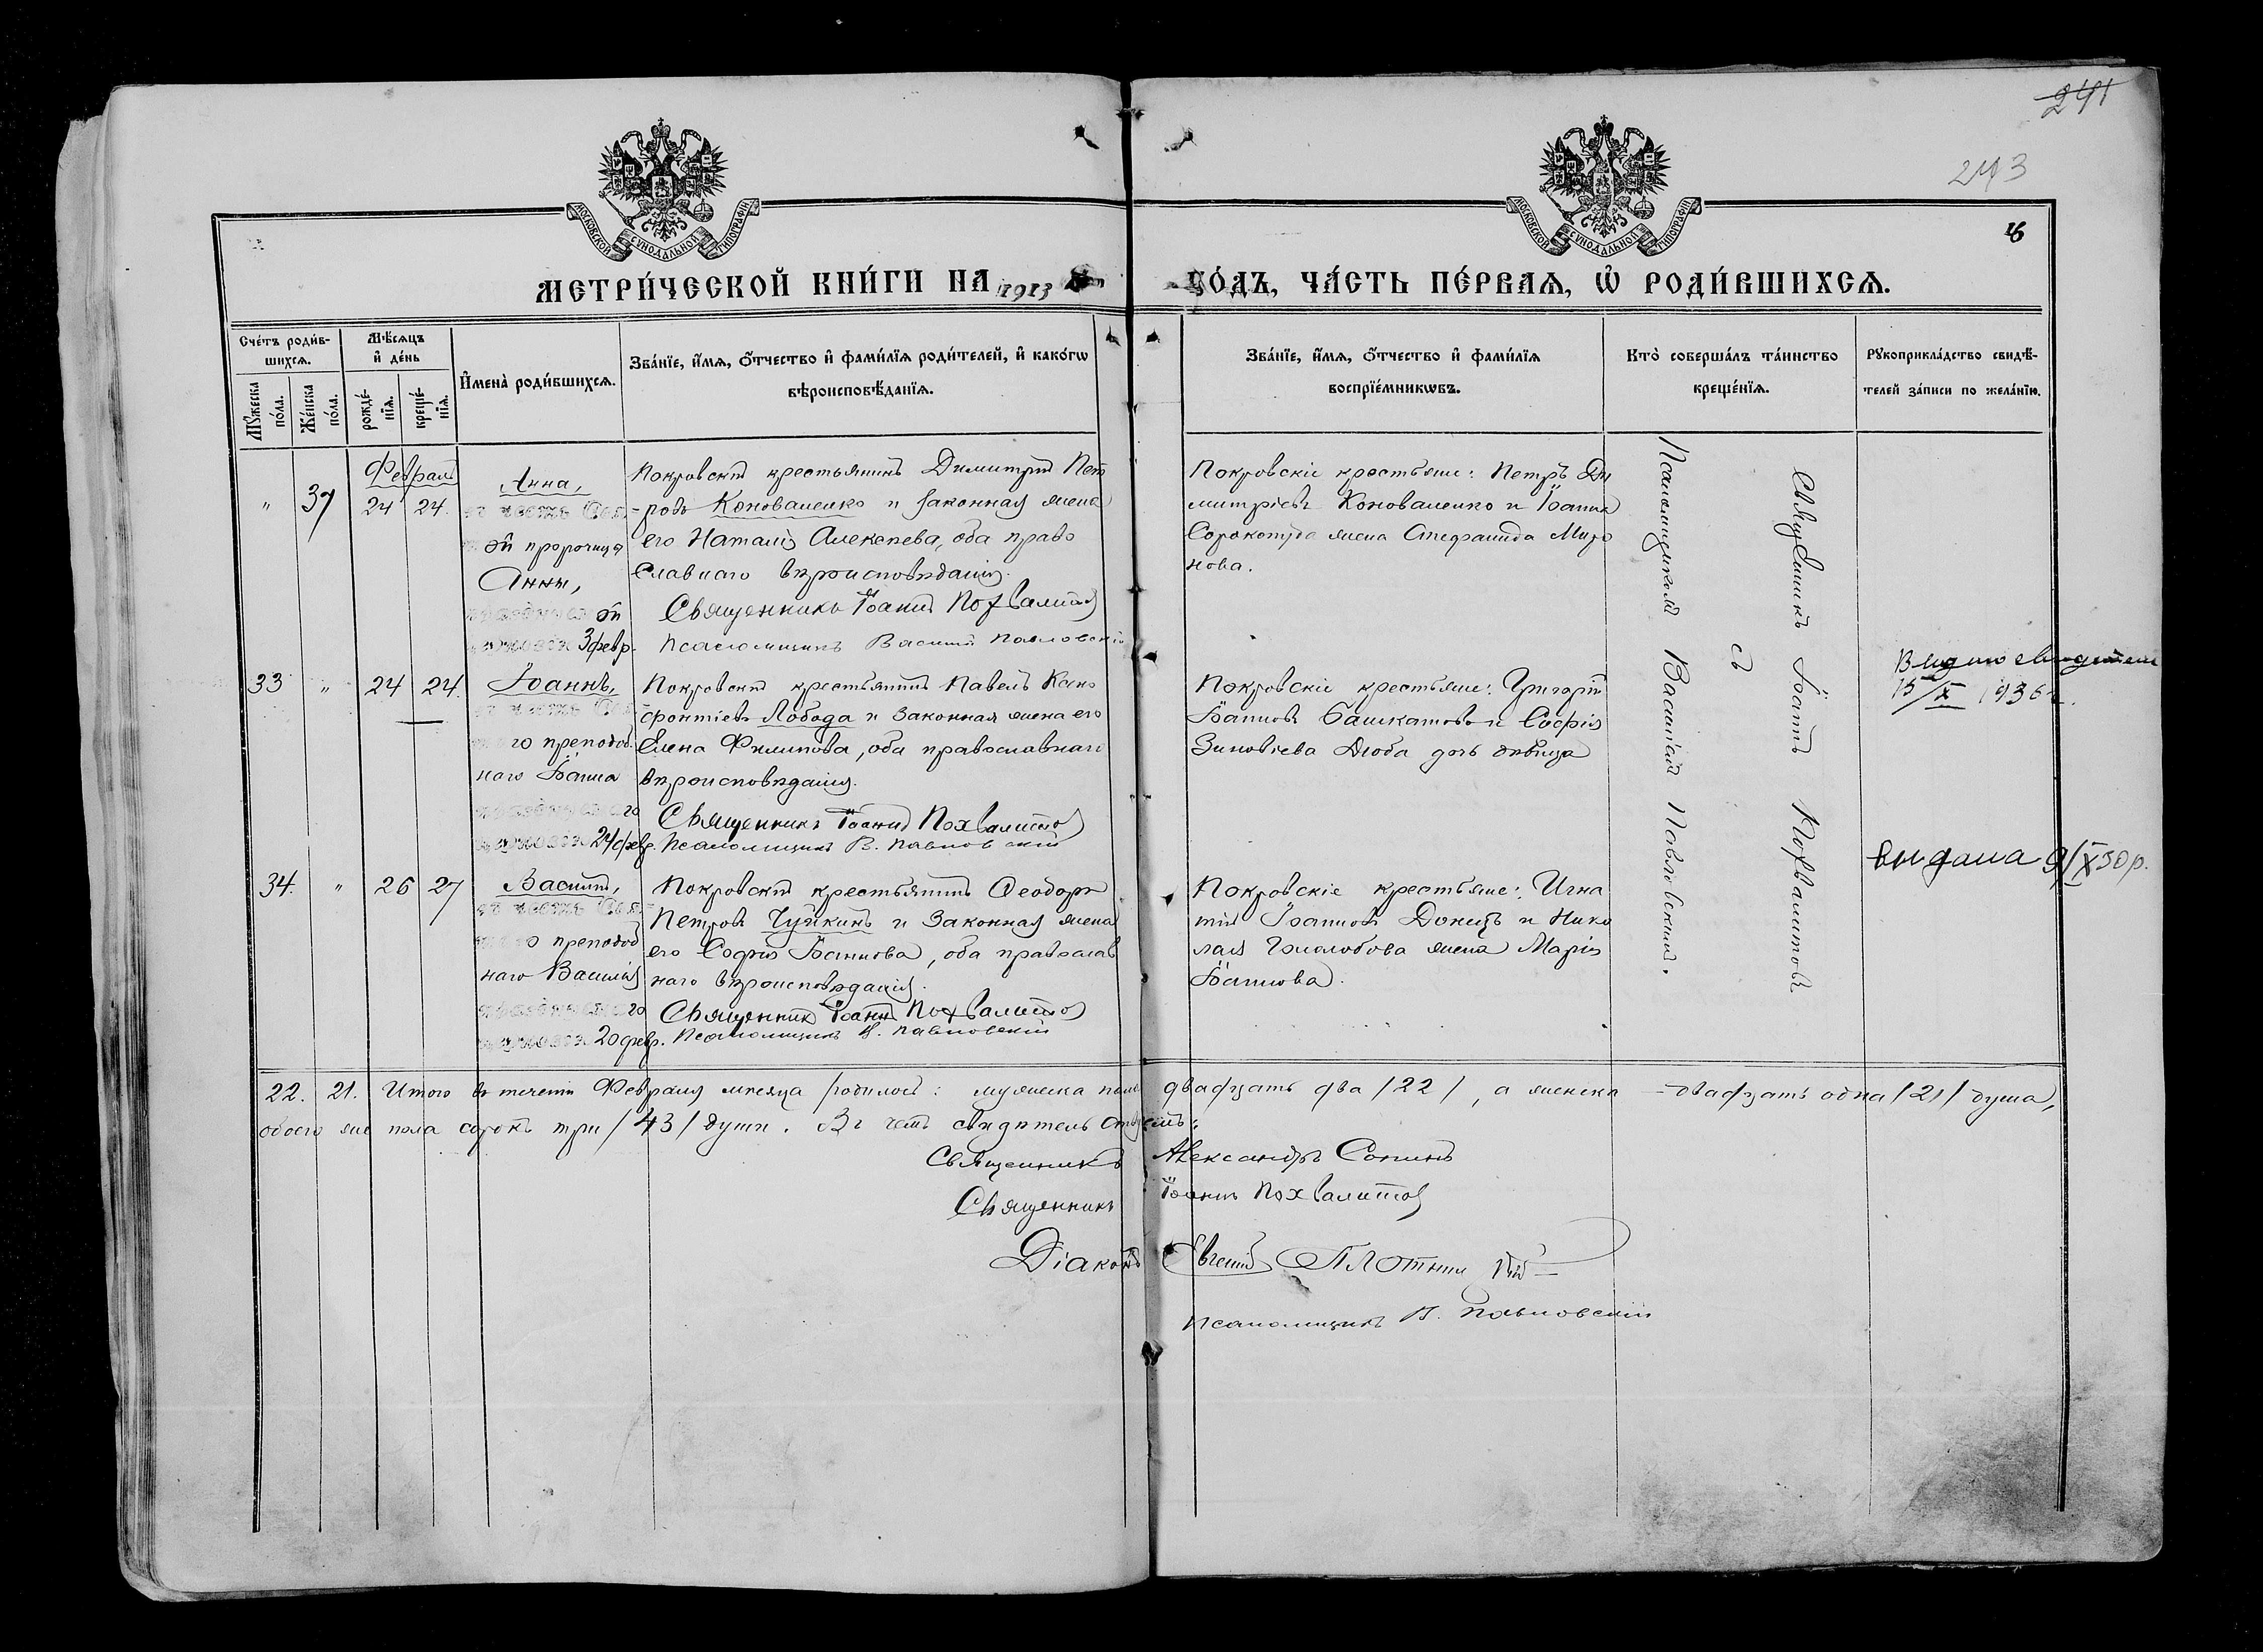 241
243
16
МОСКОВСКОЙ СѴНОДАЛЬНОЙ ТИПОГРАФІИ
МОСКОВСКОЙ СѴНОДАЛЬНОЙ ТИПОГРАФІИ
МЕТРИ́ЧЕСКОЙ КНИ́ГИ НА 1913
ГО́ДЪ, ЧА́СТЬ ПЕ́РВАѦ, Ѡ҆ РОДИ́ВШИХСѦ.
Сче́тъ роди́в-
шихсѧ.
Мꙋ́жеска по́ла.
Же́нска по́ла.
Мѣ́сѧцъ и҆ де́нь
рожде́-нїѧ.
креще́-нїѧ.
И҆мена̀ роди́вшихсѧ.
Зва́нїе, и҆́мѧ, ѻ҆́тчество и҆ фами́лїѧ роди́телей, и҆ како́гѡ
вѣроисповѣ́данїѧ.
Зва́нїе, и҆́мѧ, ѻ҆́тчество и҆ фами́лїѧ
воспрїе́мникѡвъ.
Кто̀ соверша́лъ та́инство
креще́нїѧ.
Рꙋкоприкла́дство свидѣ́-
телей за́писи по жела́нїю.
Февраль
" 37 24 24.
Анна,
въ честь Свят-
ой пророчицы
Анны,
ой
3 февр.
Покровскій крестьянинъ Димитрій Пет
ровъ Коноваленко и законная жена
его Наталія Алексѣева, оба право
славнаго вѣроисповѣданія.
Священникъ Іоаннъ Похвалитовъ
Псаломщикъ Василій Павловскій
Покровскіе крестьяне: Петръ Ди
митріевъ Коноваленко и Іоанна
Сорокотяга жена Степанида Миро
нова.
33 " 24 24.
Іоаннъ,
въ честь Свят
го преподоб
наго Іоанна
го
24 февр.
Покровскій крестьянинъ Павелъ Ксено
фонтіевъ Лобода и законная жена его
Елена Филипова, оба православнаго
вѣроисповѣданія.
Священникъ Іоаннъ Похвалитовъ
Псаломщикъ В. Павловскій
Покровскіе крестьяне: Григорій
Іоанновъ Башкатовъ и Софія
Зиновіева Дзюба дочь дѣвица
15/X 1936 г.
34. " 26 27
Василій,
въ честь Свят
го преподоб
наго Василія
го
20 февр.
Покровскій крестьянинъ Ѳеодоръ
Петровъ Чуйкинъ и законная жена
его Софія Іоаннова, оба православ
наго вѣроисповѣданія.
Священникъ Іоаннъ Похвалитовъ
Псаломщикъ В. Павловскій
Покровскіе крестьяне: Игна
тій Іоанновъ Донецъ и Нико
лая Гололобова жена Марія
Іоаннова.
выдана 9/X 30 р.
Священникъ Іоаннъ Похвалитовъ
съ
Псаломщикомъ Василіемъ Павловскимъ.
22. 21. Итого въ теченіи Февраля мѣсяца родилось: мужеска пола двадцать два /22/, а женска – двадцать одна /21/ душа,
обоего же пола сорокъ три /43/ души. Въ чемъ свидѣтельствуемъ:
Священникъ Александръ Сонинъ
Священникъ Іоаннъ Похвалитовъ
Діаконъ Евгеній
Псаломщикъ В. Павловскій